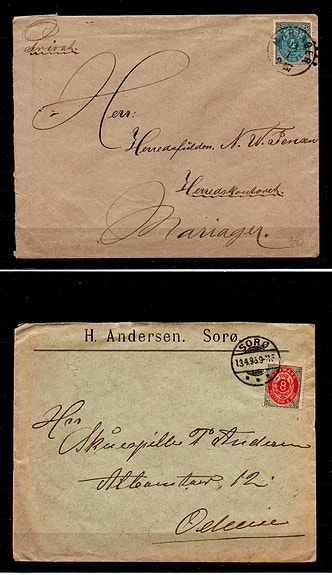 Privat
4
Herr:
Herredsfuldm. N. W. Jensen
Herredskontoret.
Mariager.
H. Andersen. Sorø.
SORØ
13.4.98.9-11F
8
Hr.
Skuespiller P Andersen
Albanstræ. 12.
Odense